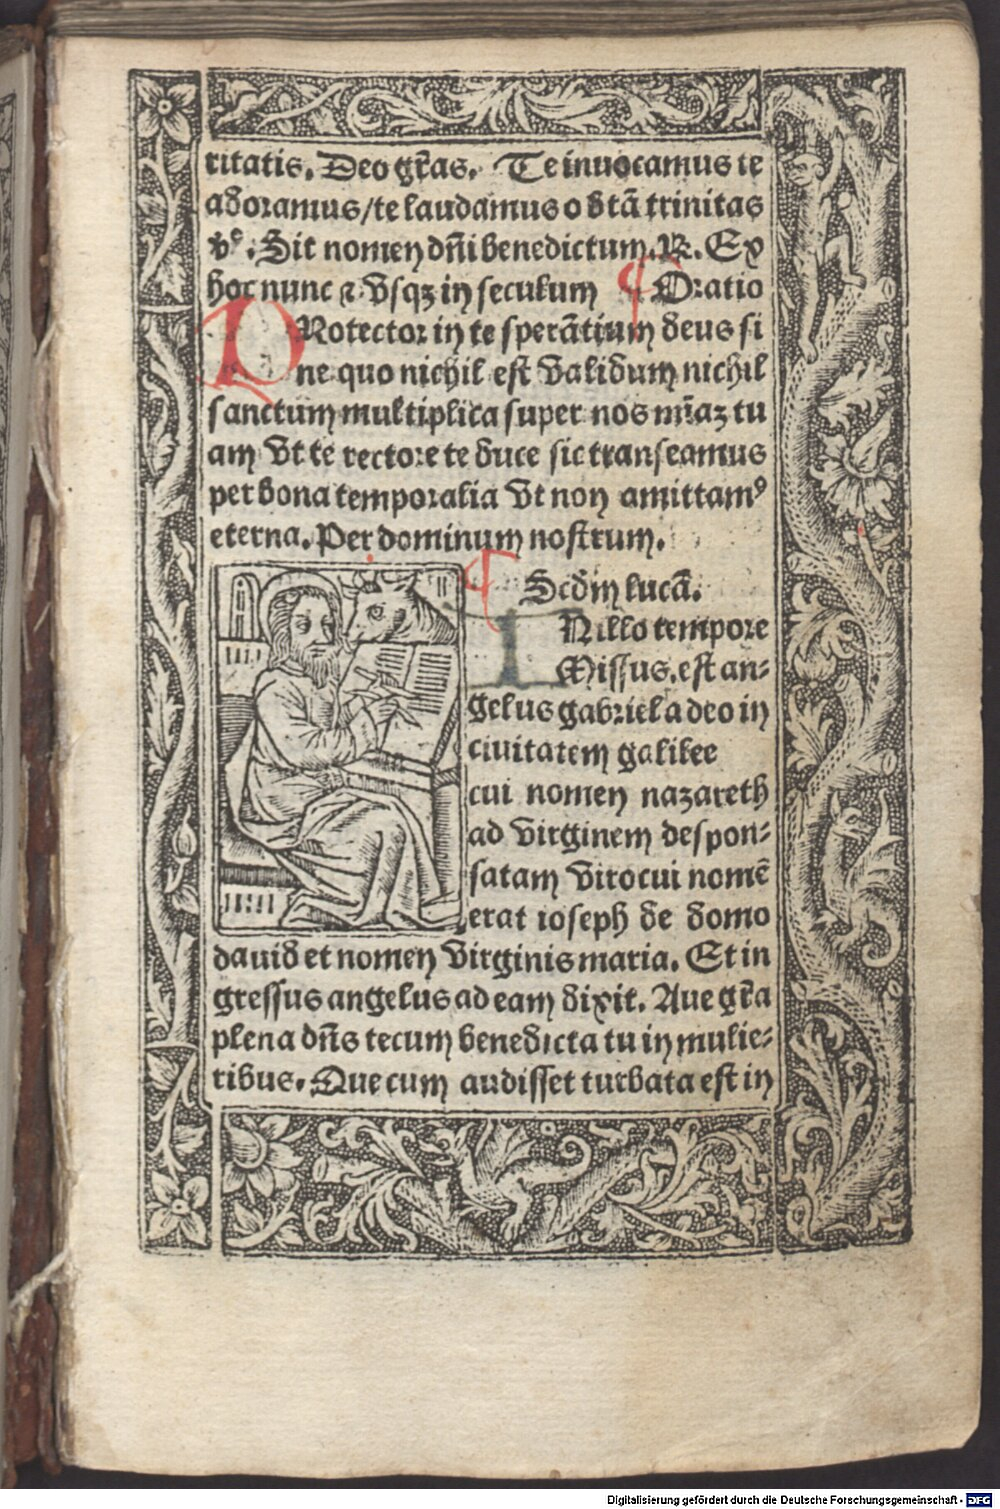 ritatis. Deo gr̄as. Te inuocamus te
adoramus/te laudamus o btā trinitas
v̊. Sit nomen dn̄i benedictum. R̸. Ex
hoc nunc ⁊ vsqꝫ in seculum ¶ Oratio
PRotector in te sperātium deus si
ne quo nichil est validum nichil
sanctum multiplica super nos mīaꝫ tu
am vt te rectore te duce sic transeamus
per bona temporalia vt non amittamꝰ
eterna. Per dominum nostrum.
¶ Scdm̄ lucā.
INillo tempore
Missus. est an-
gelus gabriel a deo in
ciuitatem galilee
cui nomen nazareth
ad virginem despon-
satam viro cui nomē
erat ioseph de domo
dauid et nomen virginis maria. Et in
gressus angelus ad eam dixit. Aue gr̄a
plena dn̄s tecum benedicta tu in mulie-
ribus. Que cum audisset turbata est in
Digitalisierung gefördert durch die Deutsche Forschungsgemeinschaft - DFG